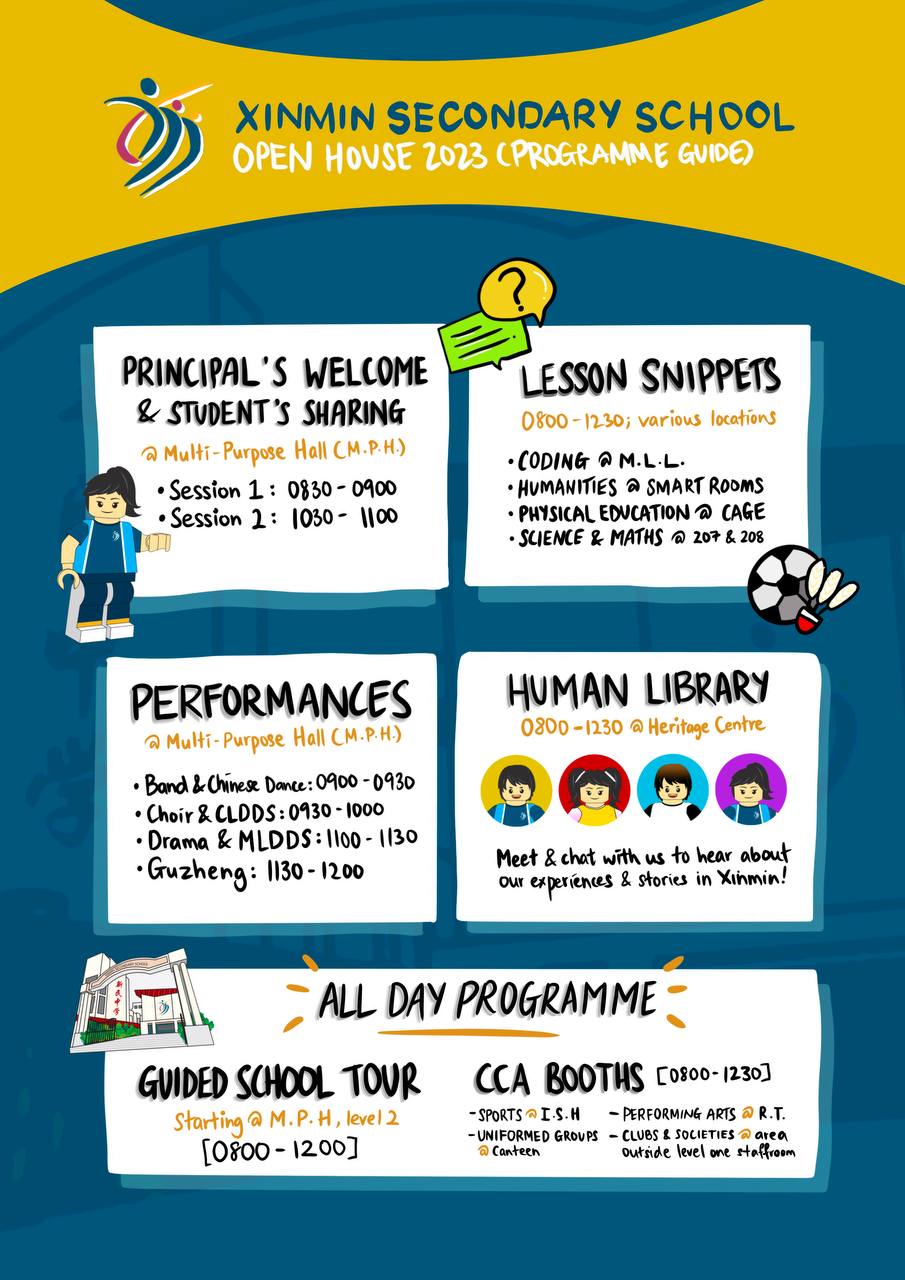 XINMIN SECONDARY SCHOOL
OPEN HOUSE 2023 (PROGRAMME GUIDE)
PRINCIPAL'S WELCOME
& STUDENT'S SHARING
@ Multi-Purpose Hall (M.P.H.)
• Session 1: 0830 - 0900
• Session 2: 1030 - 1100
?
LESSON SNIPPETS
0800-1230; various locations
• CODING @ M.L.L.
• HUMANITIES @ SMART ROOMS
• PHYSICAL EDUCATION @ CAGE
• SCIENCE & MATHS @ 207 & 208
PERFORMANCES
@ Multi-Purpose Hall (M.P.H.)
• Band & Chinese Dance: 0900 - 0930
• Choir & CLDDS: 0930 - 1000
• Drama & MLDDS: 1100 - 1130
• Guzheng: 1130 - 1200
HUMAN LIBRARY
0800 - 1230 @ Heritage Centre
Meet & chat with us to hear about
our experiences & stories in Xinmin!
ALL DAY PROGRAMME
新民中学
GUIDED SCHOOL TOUR
Starting @ M.P.H, level 2
[0800 - 1200]
CCA BOOTHS [0800-1230]
- SPORTS @ I.S.H
- UNIFORMED GROUPS
@ Canteen
- PERFORMING ARTS @ R.T.
- CLUBS & SOCIETIES @ area
outside level one staffroom